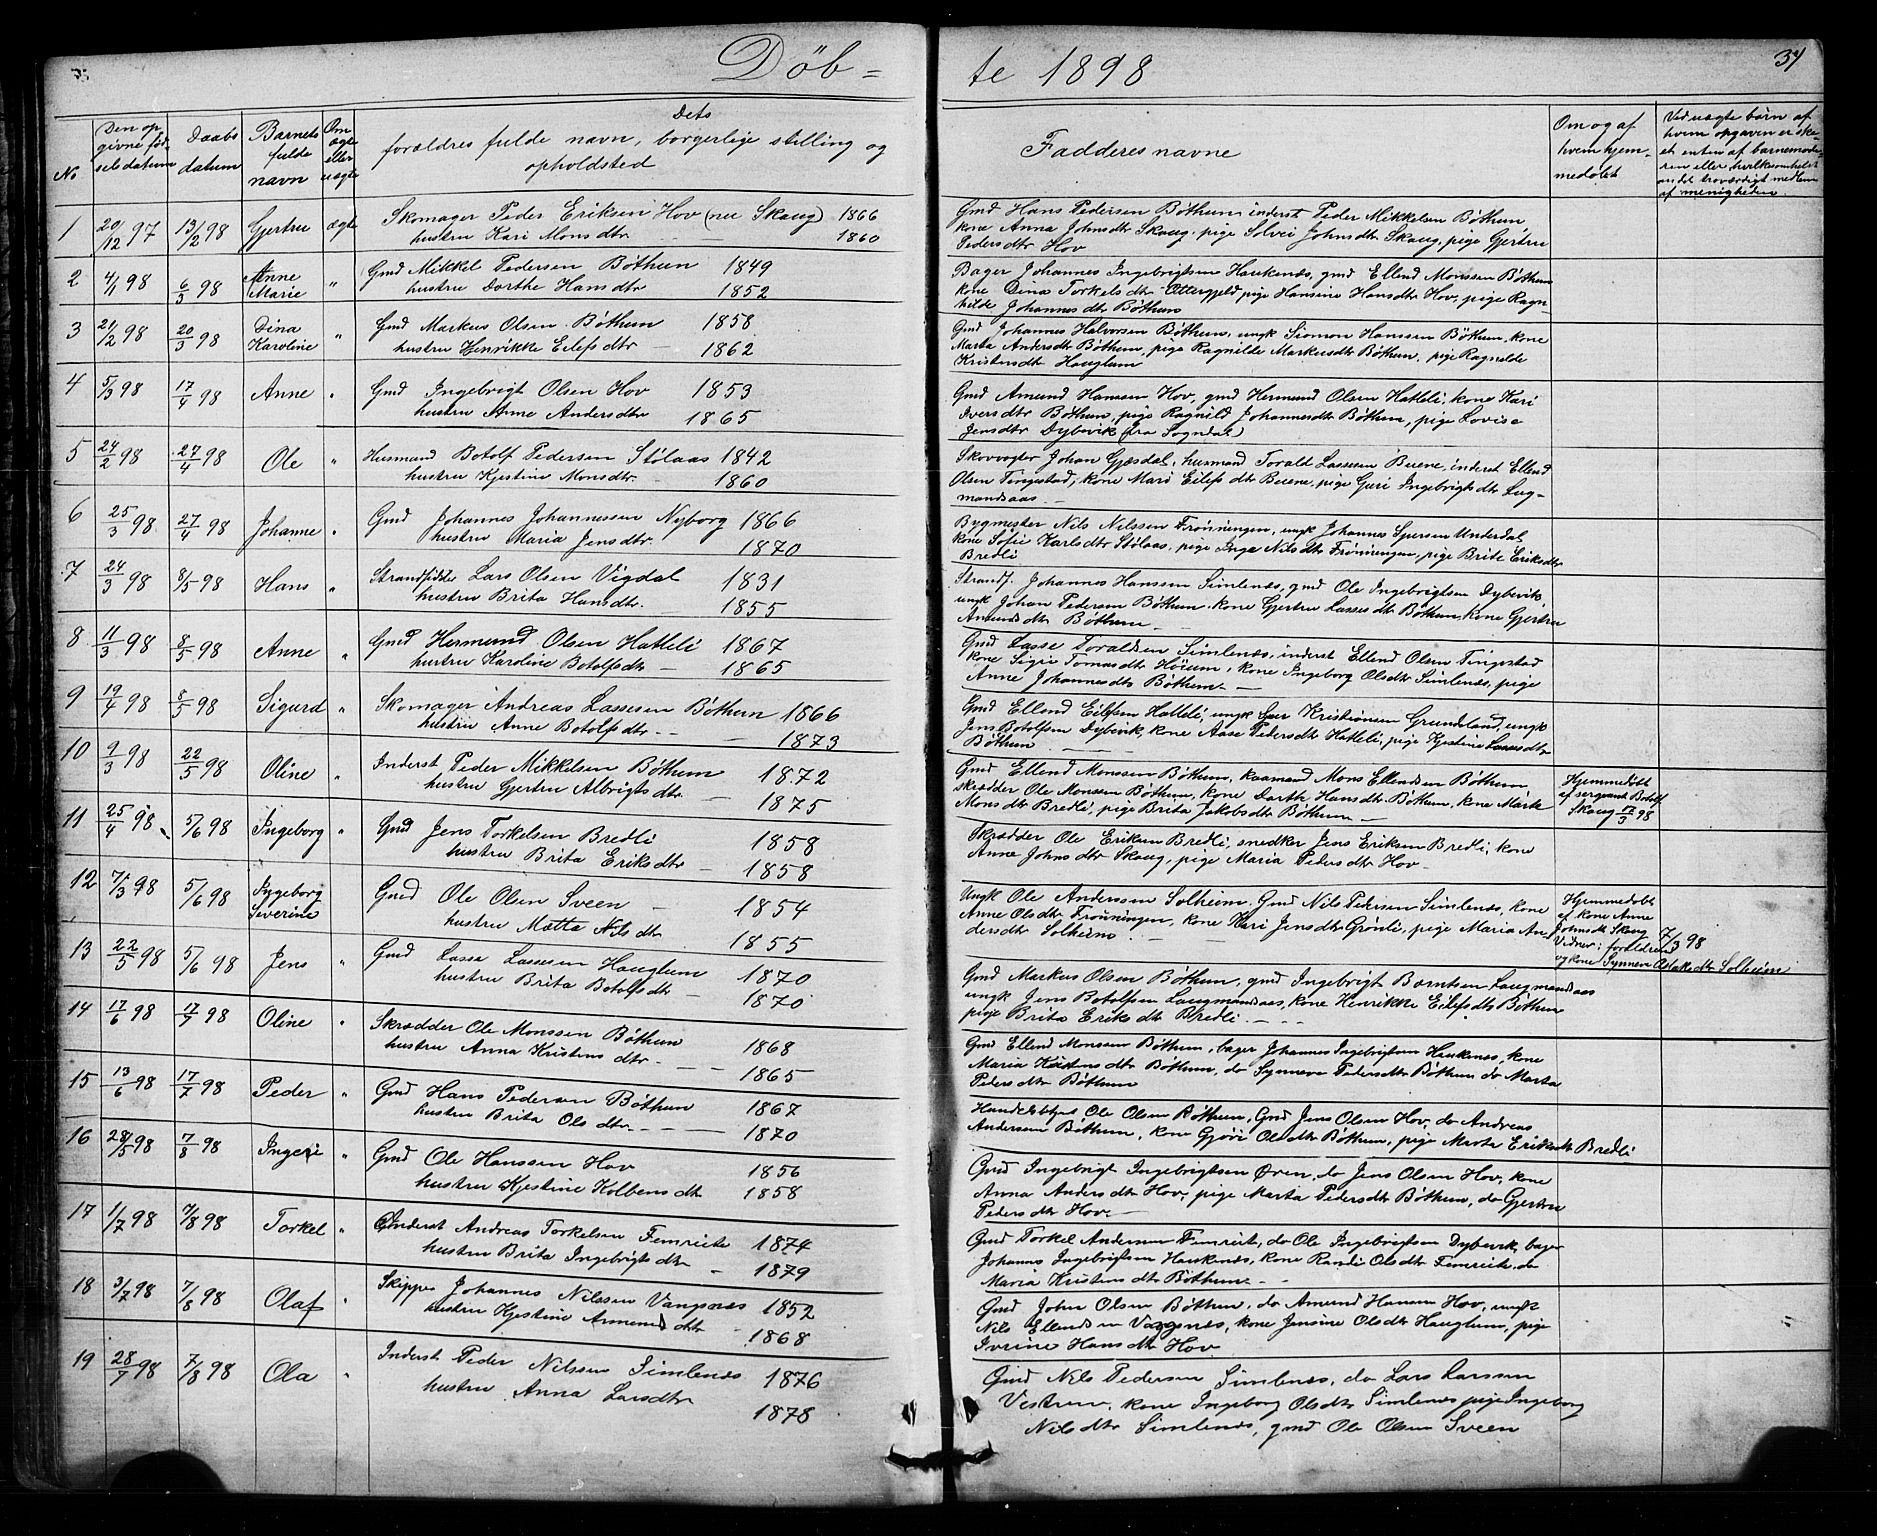 Döb = te 1898
34
No
Den op-
givne föd-
sels datum
Daabs
datum
Barnets
fulde
navn
Om
ægte
eller
uægte
Dets
forældres fulde navn, borgerlige stilling og
opholdsted
Fadderes navne
Om og af
hvem hjem-
medöbt
Ved uægte börn af
hvem opgaven er ske-
et enten af barnemode-
ren eller hvilketsomhelst
andet troværdigt medlem
af menigheden.
1 20/12 97 13/2 98 Gjertru ægte Skomager Peder Eriksen Hov (nu Skaug) 1866
hustru Kari Monsdtr. 1860
Gmd Hans Pedersen Böthun, inderst Peder Mikkelsen Böthun,
kone Anna Johnsdtr Skaug, pige Solvei Johnsdtr Skaug, pige Gjertru
Pedersdtr Hov
2 4/1 98 6/3 98 Anne Marie " Gmd Mikkel Pedersen Böthun 1849
hustru Dorthe Hansdtr 1852
Bager Johannes Ingebrigtsen Haukenæs, gmd Ellend Monssen Böthun
kone Dina Torkelsdtr Ottergjeld, pige Hansine Hansdtr Hov, pige Ragn-
hilde Johannesdtr Böthun
3 21/2 98 20/3 98 Dina Karoline " Gmd Markus Olsen Böthun 1858
hustru Henrikke Eilefsdtr 1862
Gmd Johannes Halvorsen Böthun, ungk Simon Hanssen Böthun, kone
Marta Andersdtr Böthun, pige Ragnilde Markusdtr Böthun, pige Ragnilde
Kristensdtr Hauglum
4 5/3 98 17/4 98 Anne " Gmd Ingebrigt Olsen Hov 1853
hustru Anne Andersdtr 1865
Gmd Amund Hanssen Hov, gmd Hermund Olsen Hatleli, kone Kari
Iversdtr Böthun, pige Ragnild Johannesdtr Böthun, pige Lovise
Jensdtr Dybevik (fra Sogndal)
5 24/2 98 27/4 98 Ole " Husmand Botolf Pedersen Stölaas 1842
hustru Kjestine Monsdtr. 1860
Skovvogter Johan Gjesdal, husmand Torald Lassesen Buene, inderst Ellend
Olsen Tingestad, kone Mari Eilefsdtr Buene, pige Guri Ingebrigtsdtr Lug-
mandsaas
6 25/3 98 27/4 98 Johanne " Gmd Johannes Johannessen Nyborg 1866
hustru Maria Jensdtr. 1870
Bygmester Nils Nilssen Frönningen, ungk Johannes Sjursen Underdal
kone Sofie Karlsdtr Stölaas, pige Inga Nilsdtr Frönningen, pige Brite Eriksdtr
Bredli
7 24/3 98 8/5 98 Hans " Strandsidder Lars Olsen Vigdal 1831
hustru Brita Hansdtr. 1855
Strands. Johannes Hanssen Simlenæs, gmd Ole Ingebrigtsen Dybevik,
ungk Johan Pedersen Böthun, kone Gjertru Lassesdtr Böthun, kone Gjertru
Amundsdtr Böthun
8 11/3 98 8/5 98 Anne " Gmd Hermund Olsen Hatleli 1867
hustru Karoline Botolfsdtr 1865
Gmd Lasse Toraldsen Simlenæs, inderst Ellend Olsen Tingestad
kone Sigri Tomasdtr Höium, kone Ingeborg Olsdtr Simlenæs, pige
Anne Johannesdtr Böthun
9 19/4 98 8/5 98 Sigurd " Skomager Andreas Lassesen Böthun 1866
hustru Anne Botolfsdtr. 1873
Gmd Ellend Eilefsen Hatleli, ungk Kristiansen Grundeland, ungk
Jens Botolfsen Dybevik, kone Aase Pedersdtr Hatleli, pige Kjestine Lassesdtr
Böthun
10 9/3 98 22/5 98 Oline " Inderst Peder Mikkelsen Böthun 1872
hustru Gjertru Albrigtsdtr. 1875
Gmd Ellend Monssen Böthun, kaarmand Mons Ellendsen Böthun
skrædder Ole Monssen Böthun, kone Dorth. Hansdtr Böthun, kone Marte
Monsdtr Bredli, pige Brita Jakobsdtr Böthun
Hjemmedöbt
af sergeant Botolf
Skaug 17/3 98
11 25/4 98 5/6 98 Ingeborg " Gmd Jens Torkelsen Bredli 1858
hustru Brita Eriksdtr 1858
Skrædder Ole Eriksen Bredli, snedker Jens Eriksen Bredli, kone
Anne Johnsdtr Skaug, pige Maria Pedersdtr Hov
12 7/3 98 5/6 98 Ingeborg Severine Gmd Ole Olsen Sveen 1854
hustru Mætta Nilsdtr 1855
Ungk Ole Anderssen Solheim, Gmd Nils Pedersen Simlenæs, kone
Anne Olsdtr Frönningen, kone Kari Jensdtr Grönli, pige Maria An-
dersdtr Solheim
Hjemmedöbt
af kone Anne
Johnsdtr Skaug 7/3 98
Vidner: forældrene
og kone Synneva Aslaksdtr Solheim
13 22/5 98 5/6 98 Jens " Gmd Lasse Lassesen Hauglum 1870
hustru Brita Botolfsdtr 1870
Gmd Markus Olsen Böthun, gmd Ingebrigt Berntsen Laugmandsaas
ungk Jens Botolfsen Laugmandsaas, kone Henrikke Eilefsdtr Böthun
pige Brita Eriksdtr Bredli
14 17/6 98 17/7 98 Oline " Skrædder Ole Monssen Böthun 1868
hustru Anna Kristensdtr. 1865
Gmd Ellend Monssen Böthun, bager Johannes Ingebrigtsen Haukenæs, kone
Maria Kristensdtr Böthun, do Synneva Pedersdtr Böthun do Marta
Pedersdtr Böthun
15 13/6 98 17/7 98 Peder " Gmd Hans Pedersen Böthun 1867
hustru Brita Olsdtr. 1870
Handelsbtjt Ole Olsen Böthun, Gmd Jens Olsen Hov, do Andreas
Andersen Böthun, kone Gjöri Olsdtr Böthun, pige Marta Eriksdtr Bredli
16 28/5 98 7/8 98 Ingeri " Gmd Ole Hanssen Hov 1856
hustru Kjestine Kolbensdtr 1858
Gmd Ingebrigt Ingebrigtsen Øren, do Jens Olsen Hov, kone
Anna Andersdtr Hov, pige Marta Pedersdtr Böthun, do Gjertru
Pedersdtr Hov
17 1/7 98 7/8 98 Torkel " Inderst Andreas Torkelsen Femreite 1874
hustru Brita Ingebrigtsdtr 1879
Gmd Torkel Andersen Femreit, do Ole Ingebrigtsen Dybevik, bager
Johannes Ingebrigtsen Haukenæs, kone Randi Olsdtr Femreite, do
Maria Kristensdtr Böthun
18 3/7 98 7/8 98 Olaf " Skipper Johannes Nilssen Vangsnes 1852
hustru Kjestine dtr 1868
Gmd John Olsen Böthun, do Amund Hanssen Hov, ungk
Nils Ellendsen Vangsnes, kone Jensine Olsdtr Hauglum, pige
Iverine Hansdtr Hov
19 28/7 98 7/8 98 Ola " Inderst Peder Nilssen Simlenæs 1876
hustru Anna Larsdtr 1878
Gmd Nils Pedersen Simlenæs, do Lars Larssen
Vestrum, kone Ingeborg Olsdtr Simlenæs pige Ingeborg
Nilsdtr Simlenæs, gmd Ole Olsen Sveen